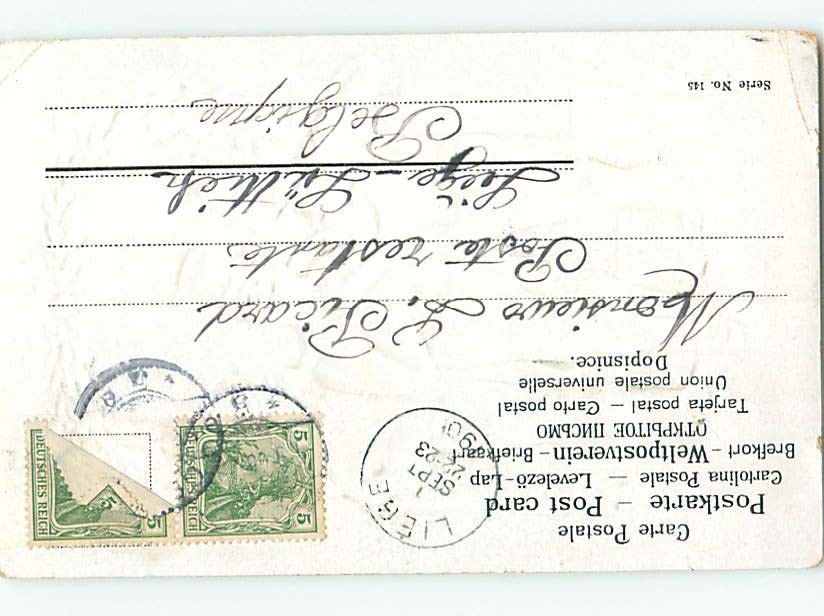 Carte Postale
Postkarte – Post card
Cartolina Postale — Levelező-Lap
Brefkort – Weltpostverein – Briefkaart
ОТКРЫТОЕ ПИСЬМО
Tarjeta postal — Carto postal
Union postale universelle
Dopisnice.
LIÉGE
1
SEPT
22-23
5
5
DEUTSCHES REICH
5
DEUTSCHES REICH
Monsieur L. Picard
Poste restante
Liège – Lüttich
Belgique
Serie No. 145